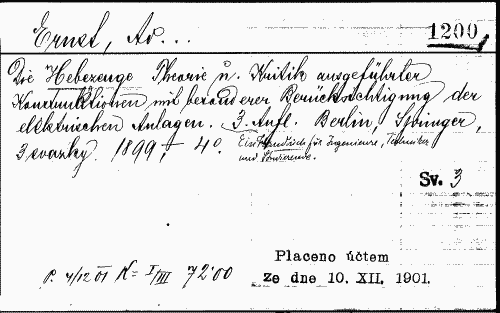 Ernst, Ad...
1200
Die Hebezeuge Theorie u. Kritik ausgeführter
Konstruktionen mit besonderer Berücksichtigung der
elektrischen Anlagen. 3. Aufl. Berlin, Springer,
3 svazky. 1899 4°. Ein Handbuch für Ingenieure, Techniker
und Studierende.
Sv. 3
Placeno účtem
P. 4/12 01 K= I/III 72·00
ze dne 10. XII. 1901.